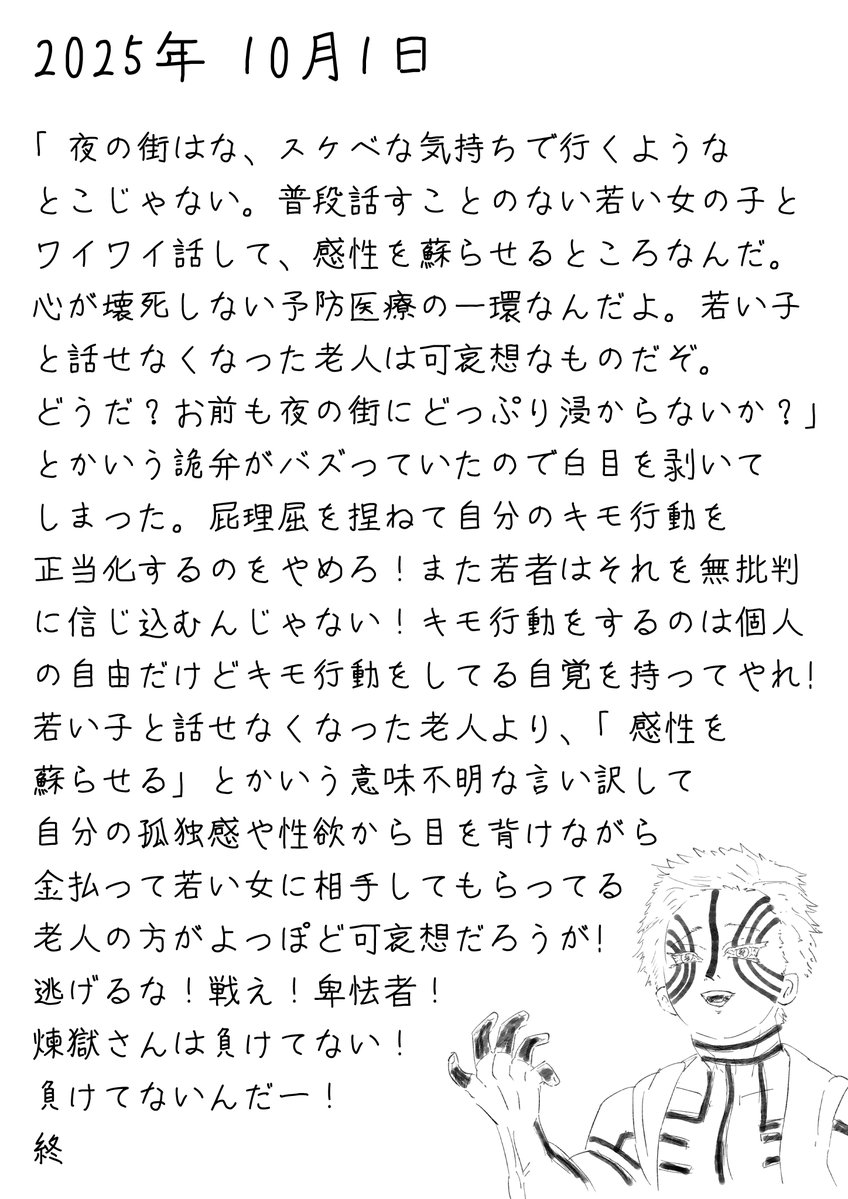 2025年 10月1日
「 夜の街はな、スケベな気持ちで行くような
とこじゃない。普段話すことのない若い女の子と
ワイワイ話して、感性を蘇らせるところなんだ。
心が壊死しない予防医療の一環なんだよ。若い子
と話せなくなった老人は可哀想なものだぞ。
どうだ？お前も夜の街にどっぷり浸からないか？」
とかいう詭弁がバズっていたので白目を剥いて
しまった。屁理屈を捏ねて自分のキモ行動を
正当化するのをやめろ！また若者はそれを無批判
に信じ込むんじゃない！キモ行動をするのは個人
の自由だけどキモ行動をしてる自覚を持ってやれ！
若い子と話せなくなった老人より、「 感性を
蘇らせる」とかいう意味不明な言い訳して
自分の孤独感や性欲から目を背けながら
金払って若い女に相手してもらってる
老人の方がよっぽど可哀想だろうが！
逃げるな！戦え！卑怯者！
煉獄さんは負けてない！
負けてないんだー！
終